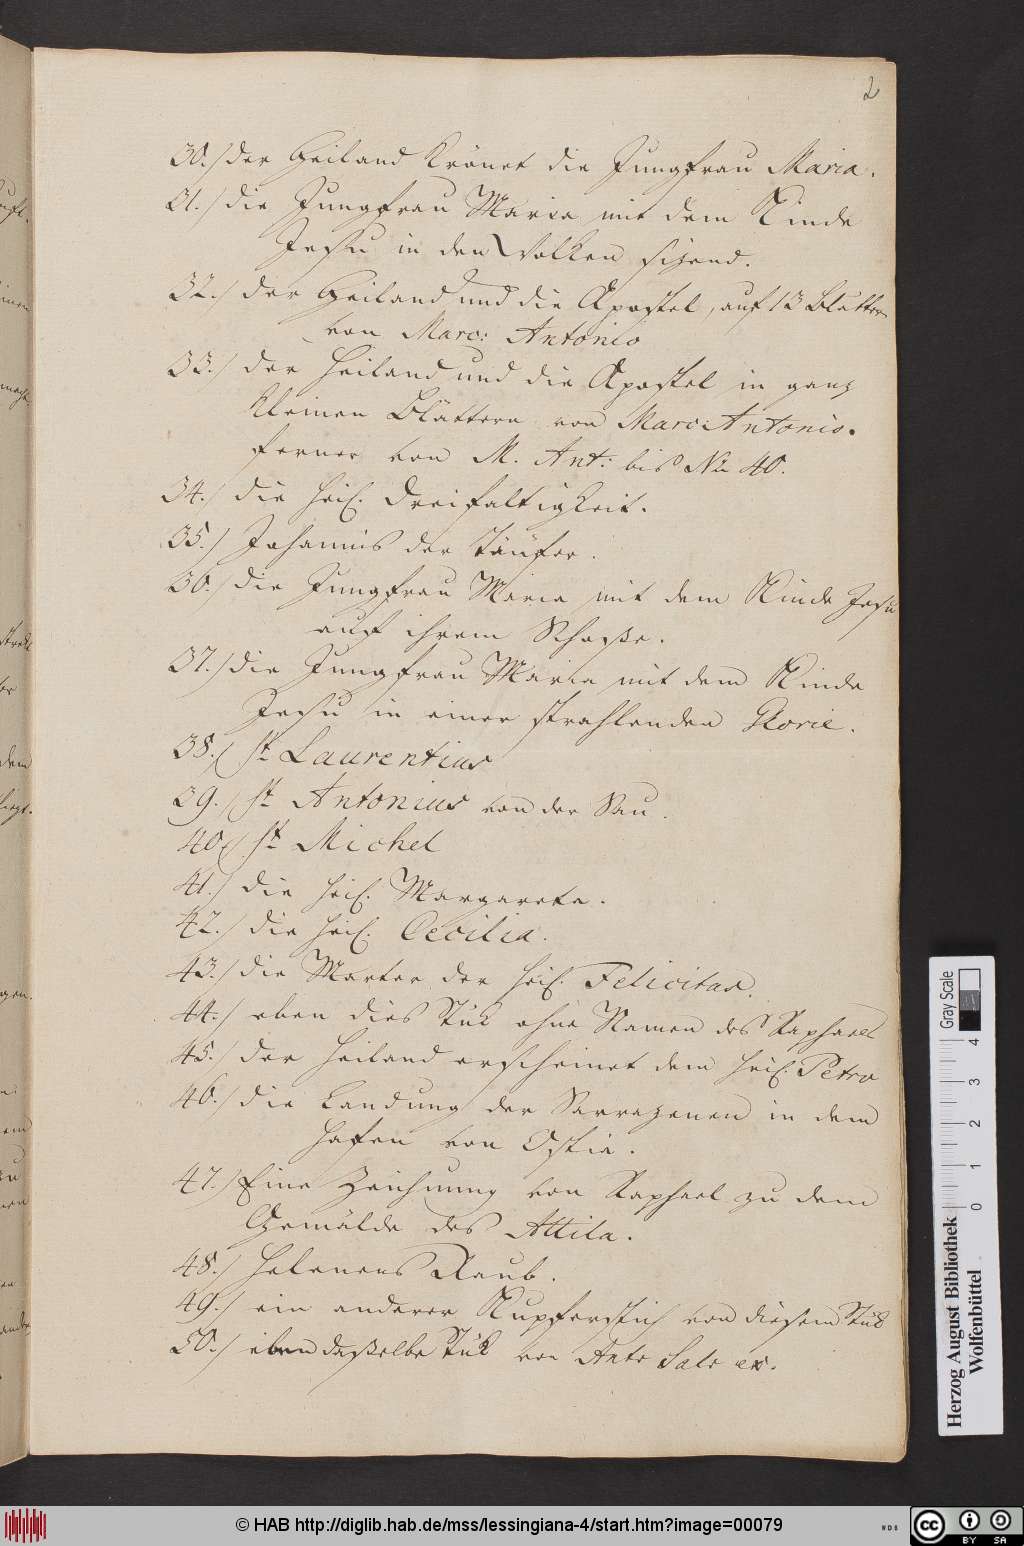 2
30./ der Heiland krönet die Jungfrau Maria.
31./ die Jungfrau Maria mit dem Kinde
Jesu in den Wolken sizend.
32./ der Heiland und die Apostel, auf 13 Blättern
von Marc: Antonio
33./ der Heiland und die Apostel in ganz
kleinen Blättern von Marc: Antonio.
ferner von M. Ant: bis No 40.
34./ die heil. Dreifaltigkeit.
35./ Johannis der Täufer.
36./ die Jungfrau Maria mit dem Kinde Jesu
auf ihrem Schoße.
37./ die Jungfrau Maria mit dem Kinde
Jesu in einer strahlenden Glorie.
38./ St Laurentius
39./ St Antonius von der Sau.
40./ St Michel
41./ die heil. Margareta.
42./ die heil. Cecilia.
43./ die Marter der heil. Felicitas.
44./ eben dies Stük ohne Namen des Raphael
45./ der Heiland erscheinet dem heil. Petro
46./ die Landung der Sarrazenen in dem
Hafen von Ostia.
47./ Eine Zeichnung von Raphael zu dem
Gemälde des Attila.
48./ Helenens Raub.
49./ ein anderer Kupferstich von diesem Stük
50./ eben dasselbe Stük von Anto Sala ex.
Gray Scale
0 1 2 3 4
Herzog August Bibliothek
Wolfenbüttel
© HAB http://diglib.hab.de/mss/lessingiana-4/start.htm?image=00079
cc BY SA